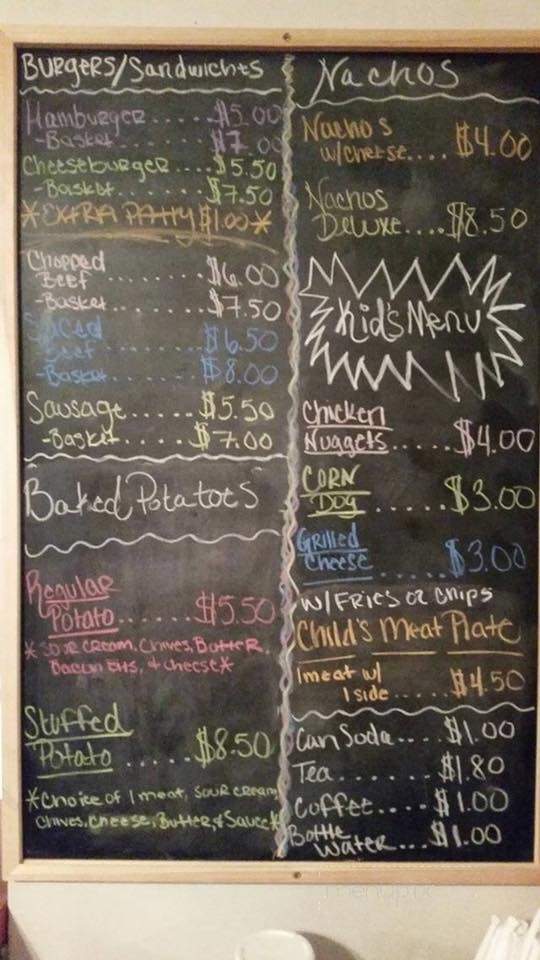 Burgers/Sandwiches
Hamburger.....$5.00
-Basket......$7.00
Cheeseburger....$5.50
-Basket......$7.50
*EXTRA PATTY $1.00*
Chopped
Beef.......$6.00
-Basket......$7.50
Sliced
Beef.......$6.50
-Basket......$8.00
Sausage.....$5.50
-Basket.....$7.00
Baked Potatoes
Regular
Potato.....$5.50
*Sour cream, Chives, Butter,
Bacon bits, & Cheese*
Stuffed
Potato.....$8.50
*Choice of 1 meat, sour cream,
Chives, Cheese, Butter, & Sauce*
Nachos
Nachos
w/cheese....$4.00
Nachos
Deluxe....$8.50
Kid's Menu
Chicken
Nuggets.....$4.00
CORN
Dog......$3.00
Grilled
Cheese......$3.00
w/FRIES or Chips
Child's Meat Plate
1 meat w/
1 side.....$4.50
Can Soda....$1.00
Tea.......$1.80
Coffee....$1.00
Bottle
Water...$1.00
menupix